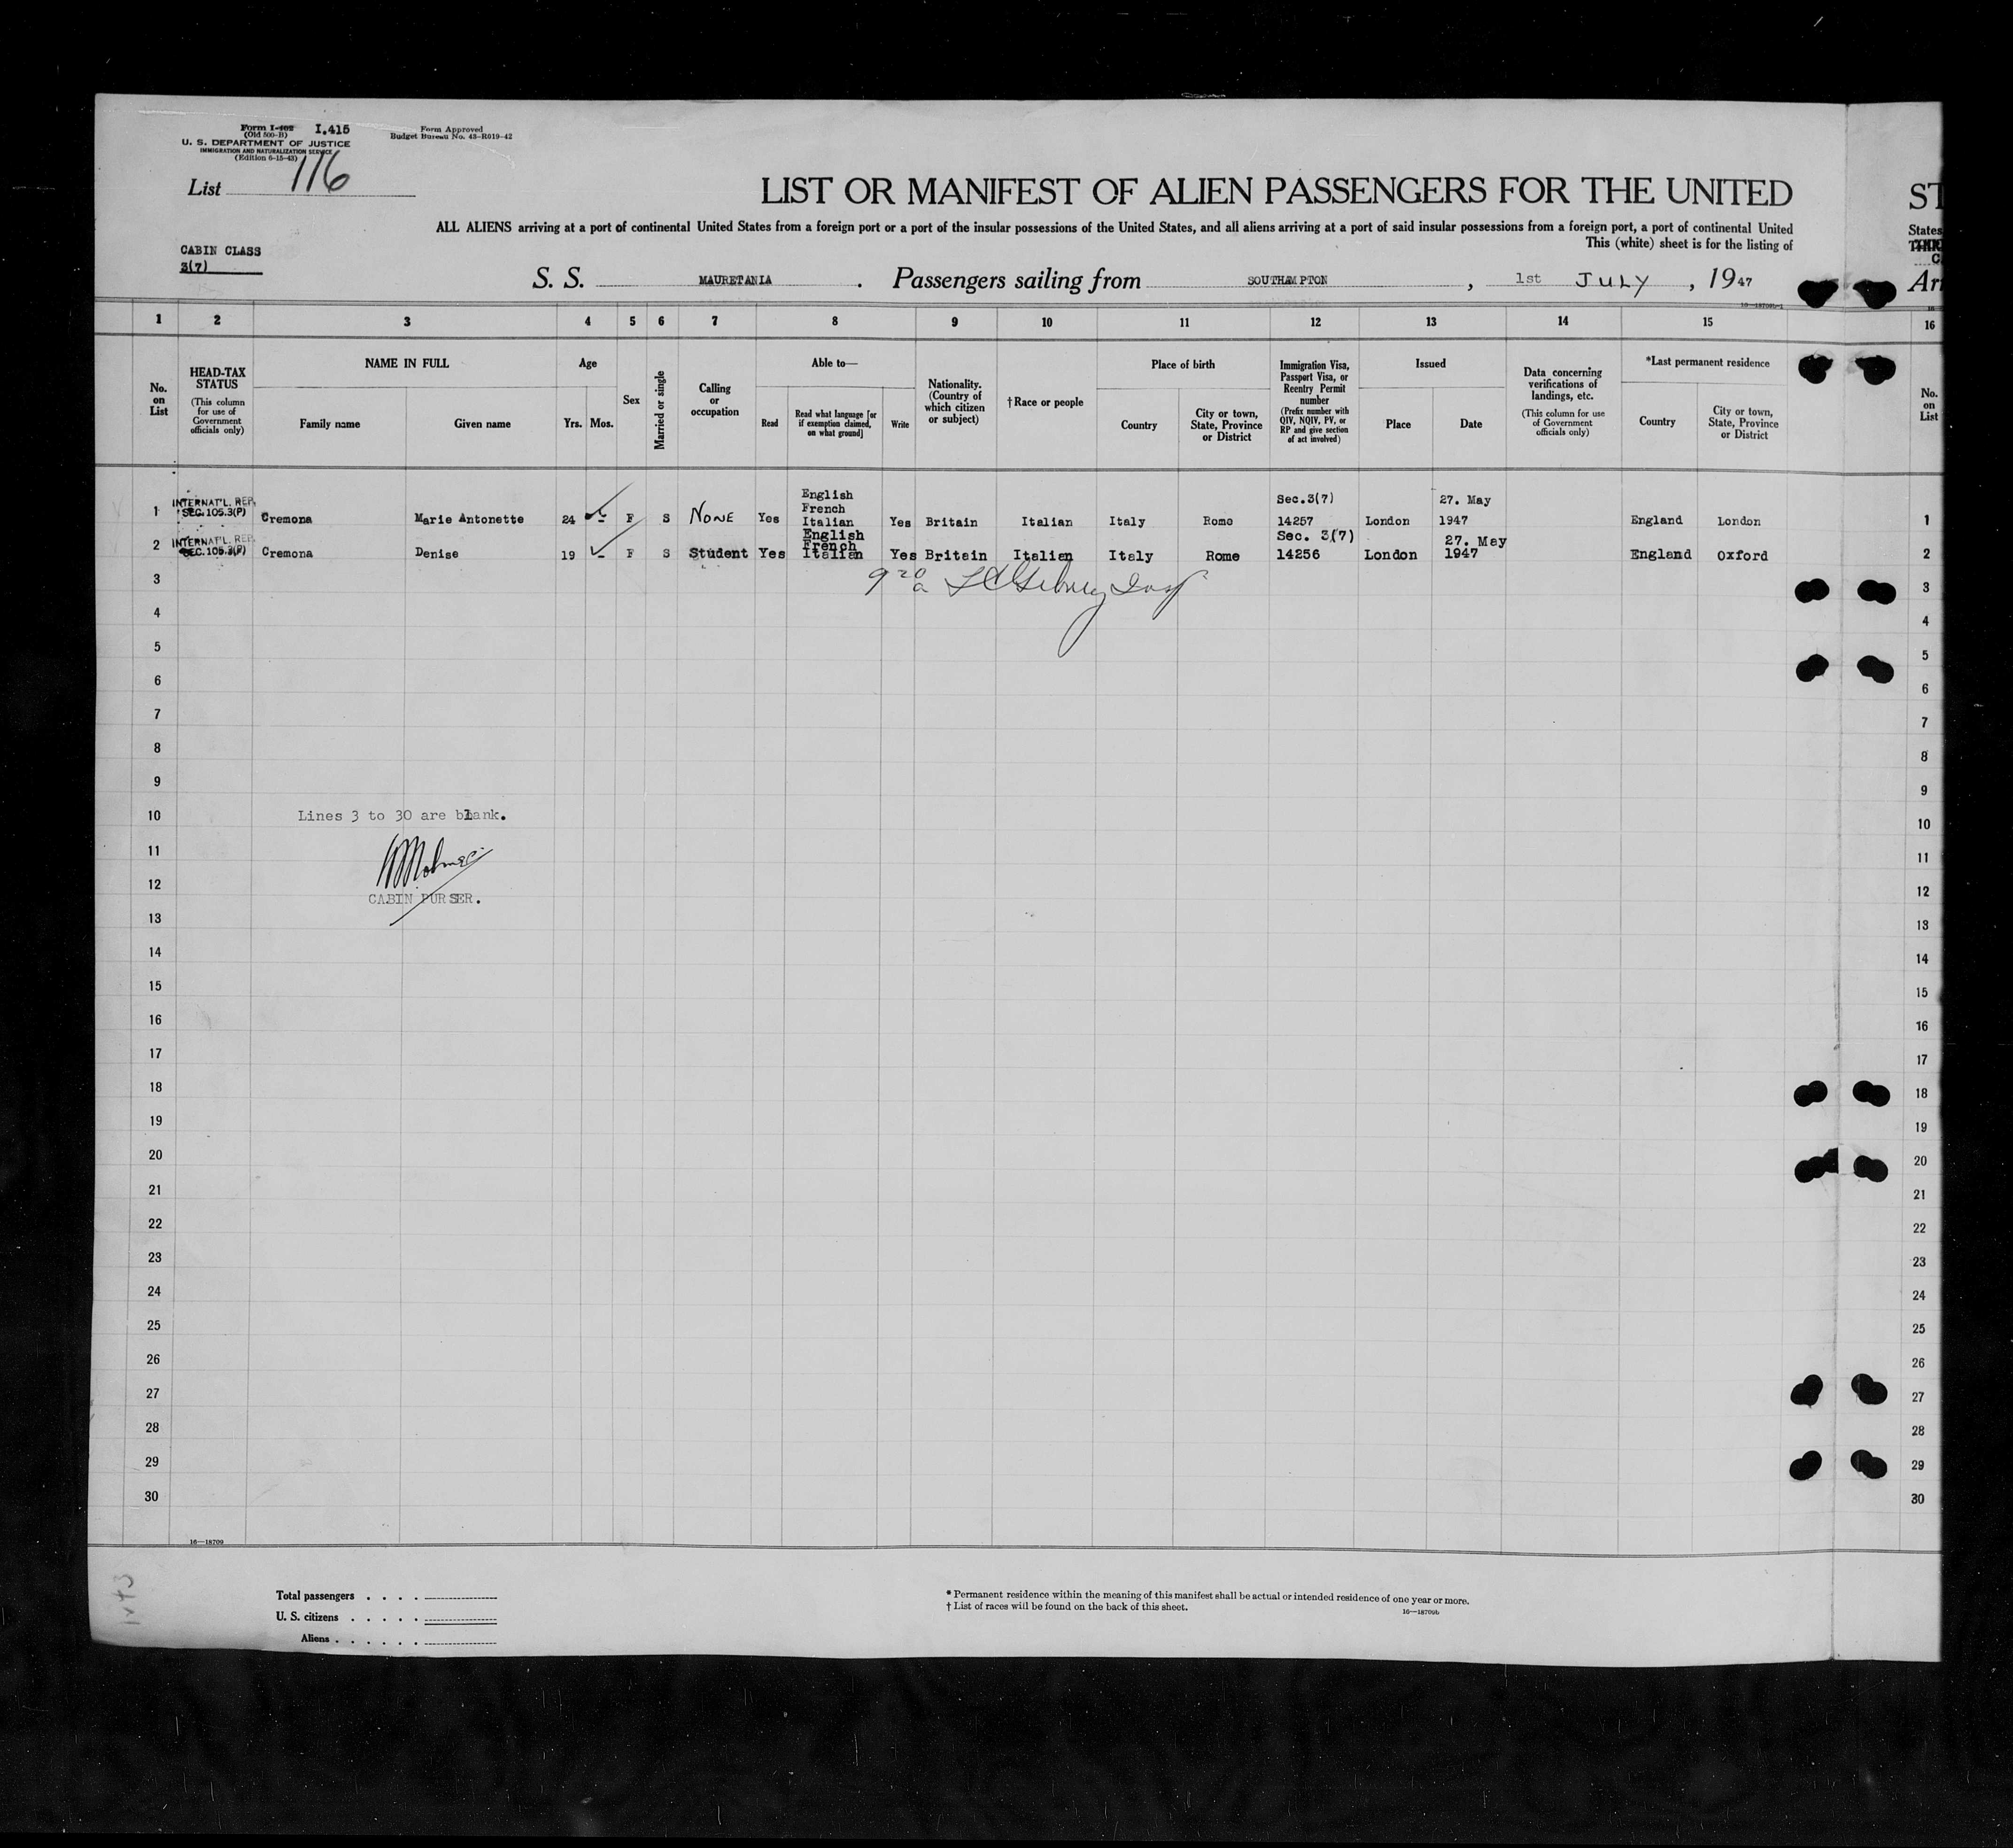 Form I-402 I.415
(Old 500-B)
U. S. DEPARTMENT OF JUSTICE
IMMIGRATION AND NATURALIZATION SERVICE
(Edition 6-15-43)
Form Approved
Budget Bureau No. 43-R019-42
List 116
LIST OR MANIFEST OF ALIEN PASSENGERS FOR THE UNITED ST
ALL ALIENS arriving at a port of continental United States from a foreign port or a port of the insular possessions of the United States, and all aliens arriving at a port of said insular possessions from a foreign port, a port of continental United States
This (white) sheet is for the listing of
CABIN CLASS
3(7)
S. S. MAURETANIA . Passengers sailing from SOUTHAMPTON , 1st JULY , 1947 Arr
1 2 3 4 5 6 7 8 9 10 11 12 13 14 15 16
No. on List
HEAD-TAX STATUS
(This column for use of Government officials only)
NAME IN FULL
Family name
Given name
Age
Yrs.
Mos.
Sex
Married or single
Calling or occupation
Able to—
Read
Read what language [or if exemption claimed, on what ground]
Write
Nationality. (Country of which citizen or subject)
†Race or people
Place of birth
Country
City or town, State, Province or District
Immigration Visa, Passport Visa, or Reentry Permit number
(Prefix number with QIV, NQIV, PV, or RP and give section of act involved)
Issued
Place
Date
Data concerning verifications of landings, etc.
(This column for use of Government officials only)
*Last permanent residence
Country
City or town, State, Province or District
No. on List
1 INTERNAT'L. REP. SEC. 105.3(P) Cremona Marie Antonette 24 - F S NONE Yes English French Italian Yes Britain Italian Italy Rome Sec.3(7) 14257 London 27. May 1947 England London 1
2 INTERNAT'L. REP. SEC. 105.3(P) Cremona Denise 19 - F S Student Yes English French Italian Yes Britain Italian Italy Rome Sec. 3(7) 14256 London 27. May 1947 England Oxford 2
3 3
4 4
5 5
6 6
7 7
8 8
9 9
10 Lines 3 to 30 are blank. 10
11 11
12 CABIN PURSER. 12
13 13
14 14
15 15
16 16
17 17
18 18
19 19
20 20
21 21
22 22
23 23
24 24
25 25
26 26
27 27
28 28
29 29
30 30
16—18709
Total passengers . . . .
U. S. citizens . . . . .
Aliens . . . . . .
* Permanent residence within the meaning of this manifest shall be actual or intended residence of one year or more.
† List of races will be found on the back of this sheet.
16—18709b